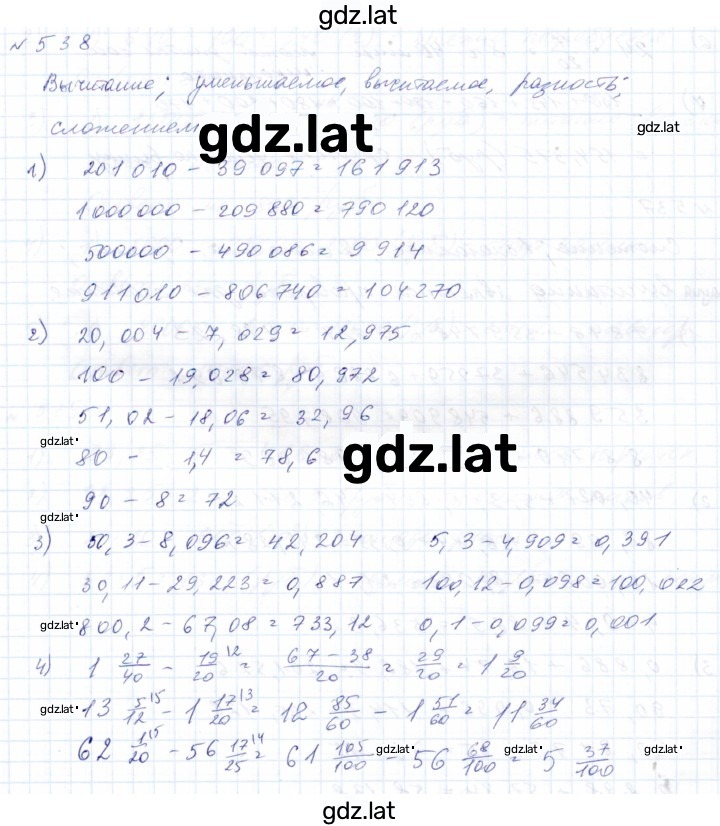 gdz.lat
№ 538
Вычитание; уменьшаемое, вычитаемое, разность;
сложением
gdz.lat
gdz.lat
1) 201 010 - 39 097 = 161 913
1 000 000 - 209 880 = 790 120
500000 - 490 086 = 9 914
911010 - 806 740 = 104 270
2) 20,004 - 7,029 = 12,975
100 - 19,028 = 80,972
51,02 - 18,06 = 32,96
gdz.lat
80 - 1,4 = 78,6
gdz.lat
90 - 8 = 72
gdz.lat
3) 50,3 - 8,096 = 42,204 5,3 - 4,909 = 0,391
30,11 - 29,223 = 0,887 100,12 - 0,098 = 100,022
gdz.lat
800,2 - 67,08 = 733,12 0,1 - 0,099 = 0,001
4) 1 27/40 - 19/20 \2 = (67 - 38)/20 = 29/20 = 1 9/20
gdz.lat
13 5/12 \5 - 1 17/20 \3 = 12 85/60 - 1 51/60 = 11 34/60
62 1/20 \5 - 56 17/25 \4 = 61 105/100 - 56 68/100 = 5 37/100
gdz.lat
gdz.lat
gdz.lat
gdz.lat